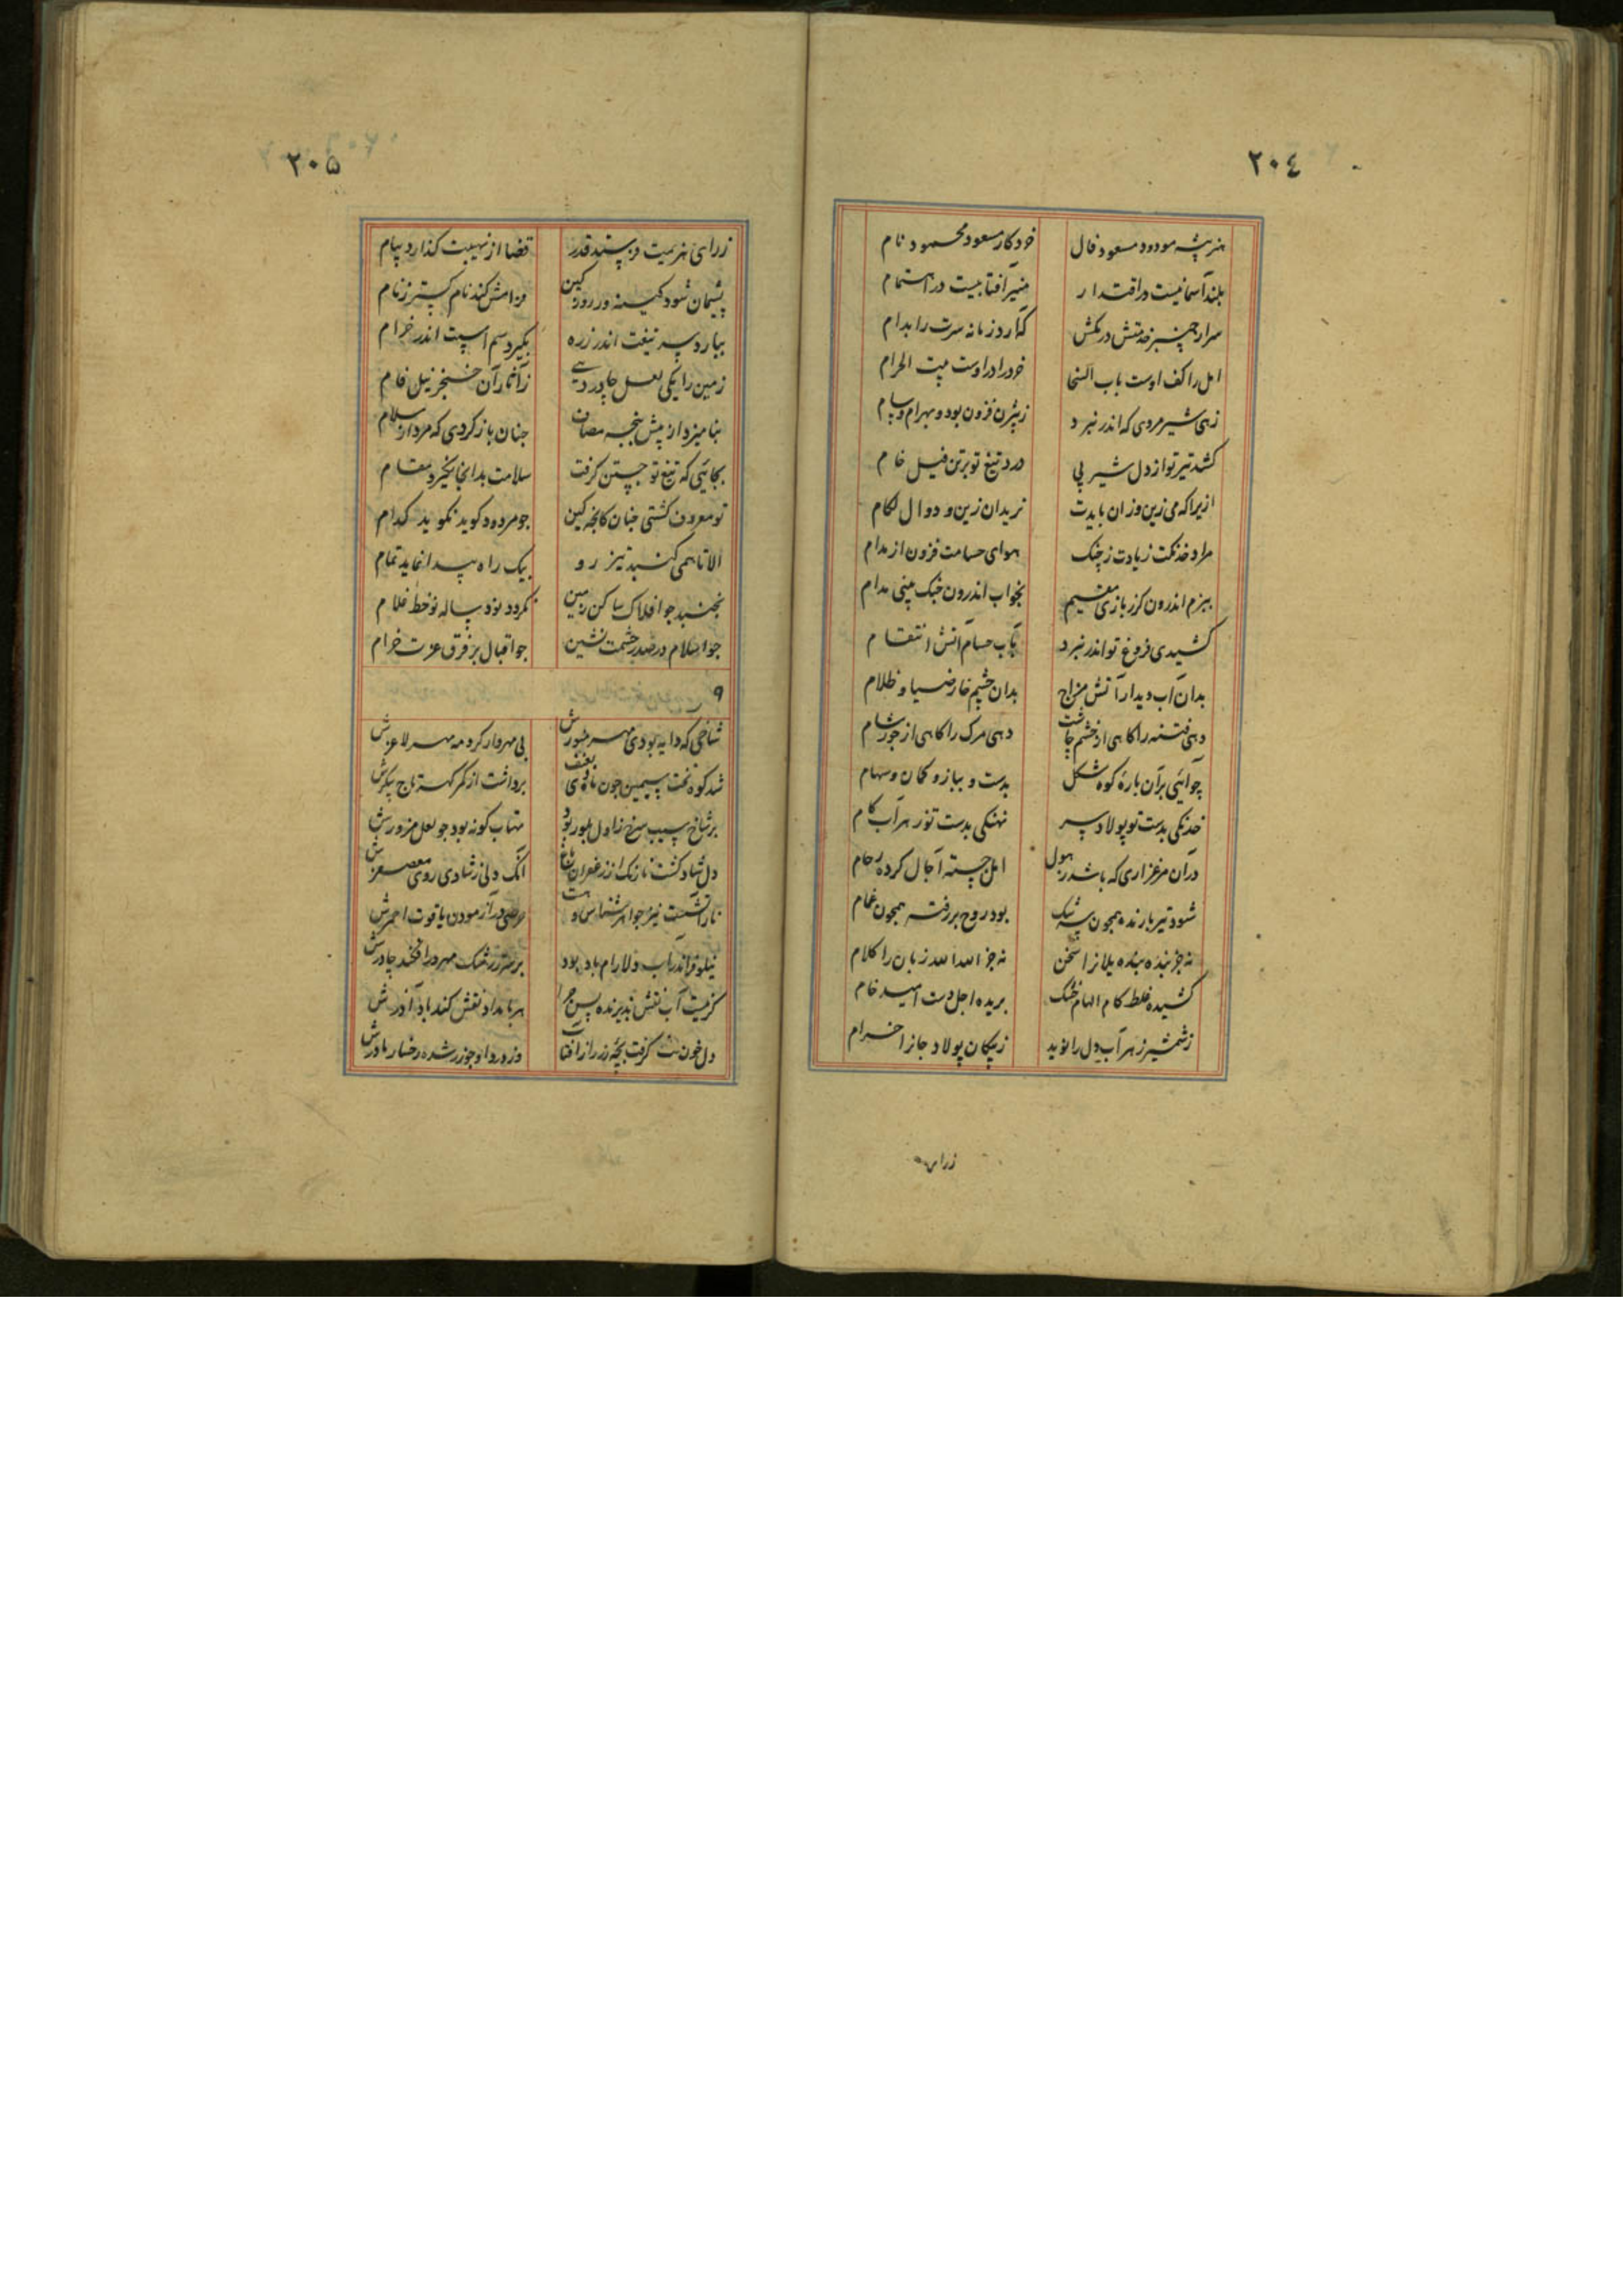 ٢٠٤
هنر پیشه مودود مسعود فال خرد کار مسعود محمود نام
بلند آسمانیست در اقتدار منیر آفتابیست در اهتمام
سر از چنبر خدمتش در مکش که آرد زمانه سرت را بدام
امل را کف اوست باب السخا خرد را در اوست بیت الحرام
زهی شیر مردی که اندر نبرد ز بیژن فزون بود و بهرام و سام
کشد تیر تو از دل شیر پی درد تیغ تو بر تن فیل خام
ازیرا که می زین و زان بایدت زین و دوال لکام
مراد خدنکت زیادت ز جنک هوای حسامت فزون از مدام
ببزم اندرون کزر بازی مقیم بخواب اندرون جنک بینی مدام
کشیدی فروغ تو اندر نبرد بآب حسام آتش انتقام
بدان آب دیدار آتش مزاج بدان چشم ضیا و ظلام
دهی فتنه را کاهی از خشم چاشت دهی مرک را کاهی از جور شام
چو آئی بر آن باره کوه شکل بدست و ببازو کمان و سهام
خدنکی بدست تو پولاد سر نهنکی بدست تو زهر آب کام
در آن مرغزاری که باشد ز هول امل جسته آجال کرده زحام
شود تیر بارنده همچون سرشک بود روح بر رفته همچون غمام
نه جز یلانرا سخن نه جز الله الله زبان را کلام
کشیده غلط کام الهام خنک بریده اجل دست امید خام
ز شمشیر زهر آب دل را نوید ز پیکان پولاد جانرا خرام
زرای
٢٠٥
زرای هزیمت پسندد قدر قضا از نهیبت کذارد پیام
پشیمان شود کینه ور روز کین فرامش کند نام کستر ز نام
ببارد سر تیغت اندر زره بگیرد سم اسپت اندر خرام
زمین را یکی لعل چادر دهی ز آثار آن خنجر نیل فام
بنامیزد از پیش پنجه مصاف چنان باز کردی که مرد از سلام
بجائی که تیغ تو جستن کرفت سلامت بدانجا نکیرد مقام
تو معروف کشتی چنان کانچه کین جو مردود کوید نکوید کدام
الا تا همی کنبد تیز رو بیک راه پیدا نماید تمام
نجنبد جو افلاک ساکن زمین نکردد بود ساله نو خط غلام
جو اسلام در صدر حشمت نشین جو اقبال بر فرق عزت خرام
٩
شاخی که دایه بودی مهر منورش بی مهر وار کرد مه مهر لاغرش
شد کوه تخت سیمین چون برداشت از کمر تاج پیکرش
بر شاخ سیب سرخ ز اول بلور بود مهتاب کونه بود جو لعل مزورش
دل شاد کشت نازک از زعفران باغ انک دلی ز شادی روی معصفرش
نار آتشست نیز جواهر شناس و هست حرصی در آزمودن یاقوت احمرش
نیلوفر اندر آب دلارام باد بود بر سر ز رشک مهر در افکند چادرش
کر نیست آب نقش پذیرنده پس چرا هر بامداد نقش کند باد آذرش
دل خون کرفت بچه رز را ز آفتاب وز درد او جو زر شده رخسار مادرش